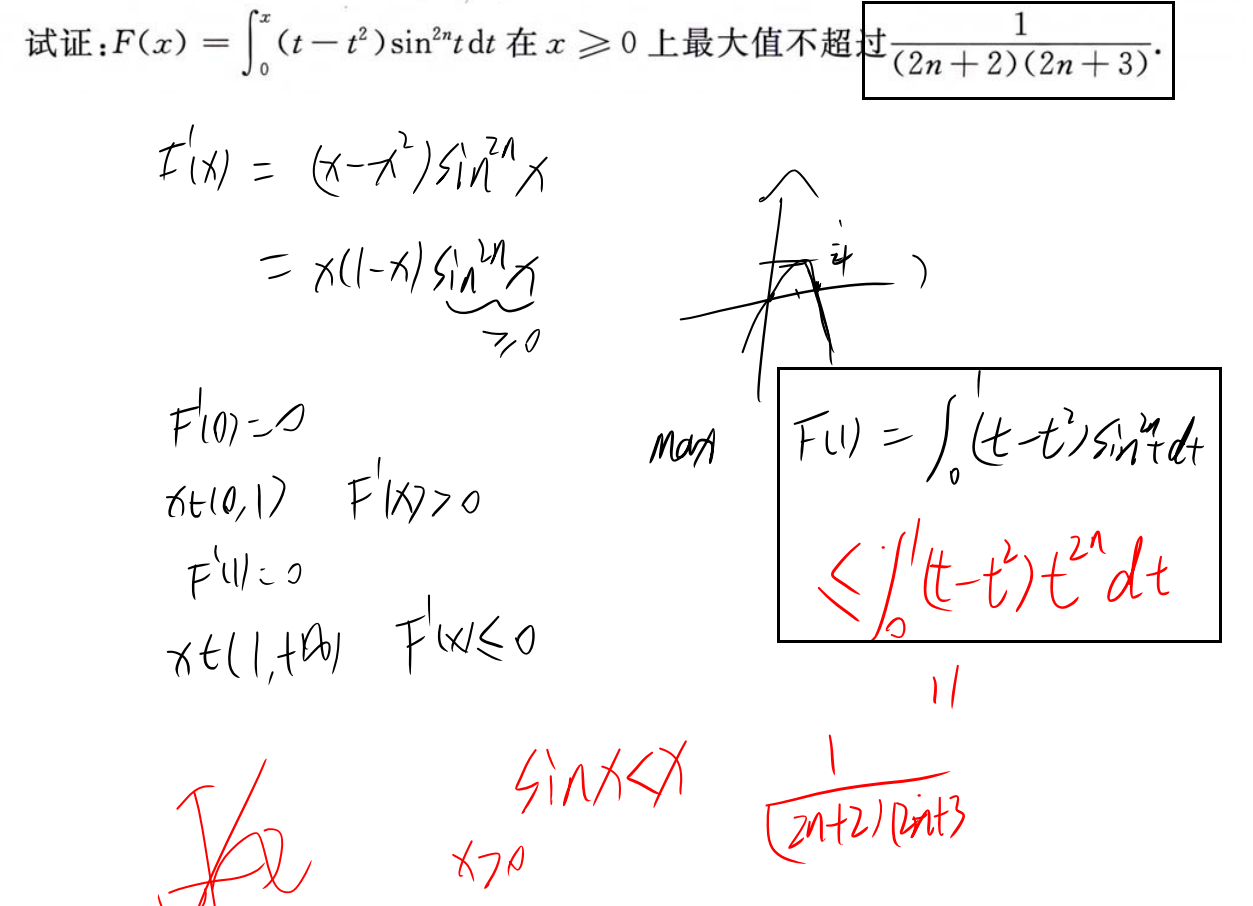 试证:F(x) = ∫₀ˣ (t − t²)sin²ⁿt dt 在 x ⩾ 0 上最大值不超过 1/((2n + 2)(2n + 3)).
F'(x) = (x-x²)sin²ⁿx
= x(1-x)sin²ⁿx
≥0
F'(0)=0
x∈(0,1) F'(x)>0
F'(1)=0
x∈(1,+∞) F'(x)≤0
max F(1) = ∫₀¹(t-t²)sin²ⁿt dt
≤∫₀¹(t-t²)t²ⁿdt
=
1/((2n+2)(2n+3
sinx<x
x>0